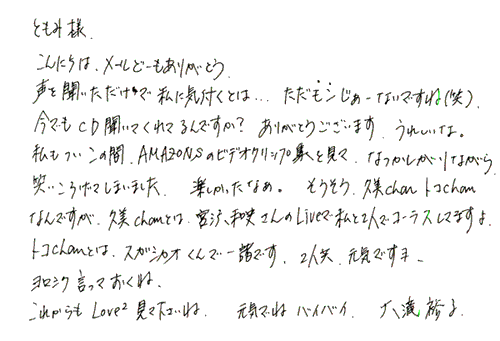 ともみ様.
こんにちは、メールどーもありがとう.
声を聞いただけで私に気付くとは… ただモンじゃーないですね(笑).
今でもCD聞いてくれてるんですか? ありがとうございます. うれしいな。
私もついこの間、AMAZONSのビデオクリップ集を見て、なつかしがりながら
笑いころげてしまいました. 楽しかったなぁ。 そうそう、久美chan トコchan
なんですが、久美chanとは、宮沢和史さんのLiveで私と2人でコーラスしてますよ.
トコchanとは、スガシカオくんで一諸です. 2人共、元気ですョー
ヨロシク言っておくね.
これからもLove² 見て下さいね. 元気でね バイバイ. 大滝裕子